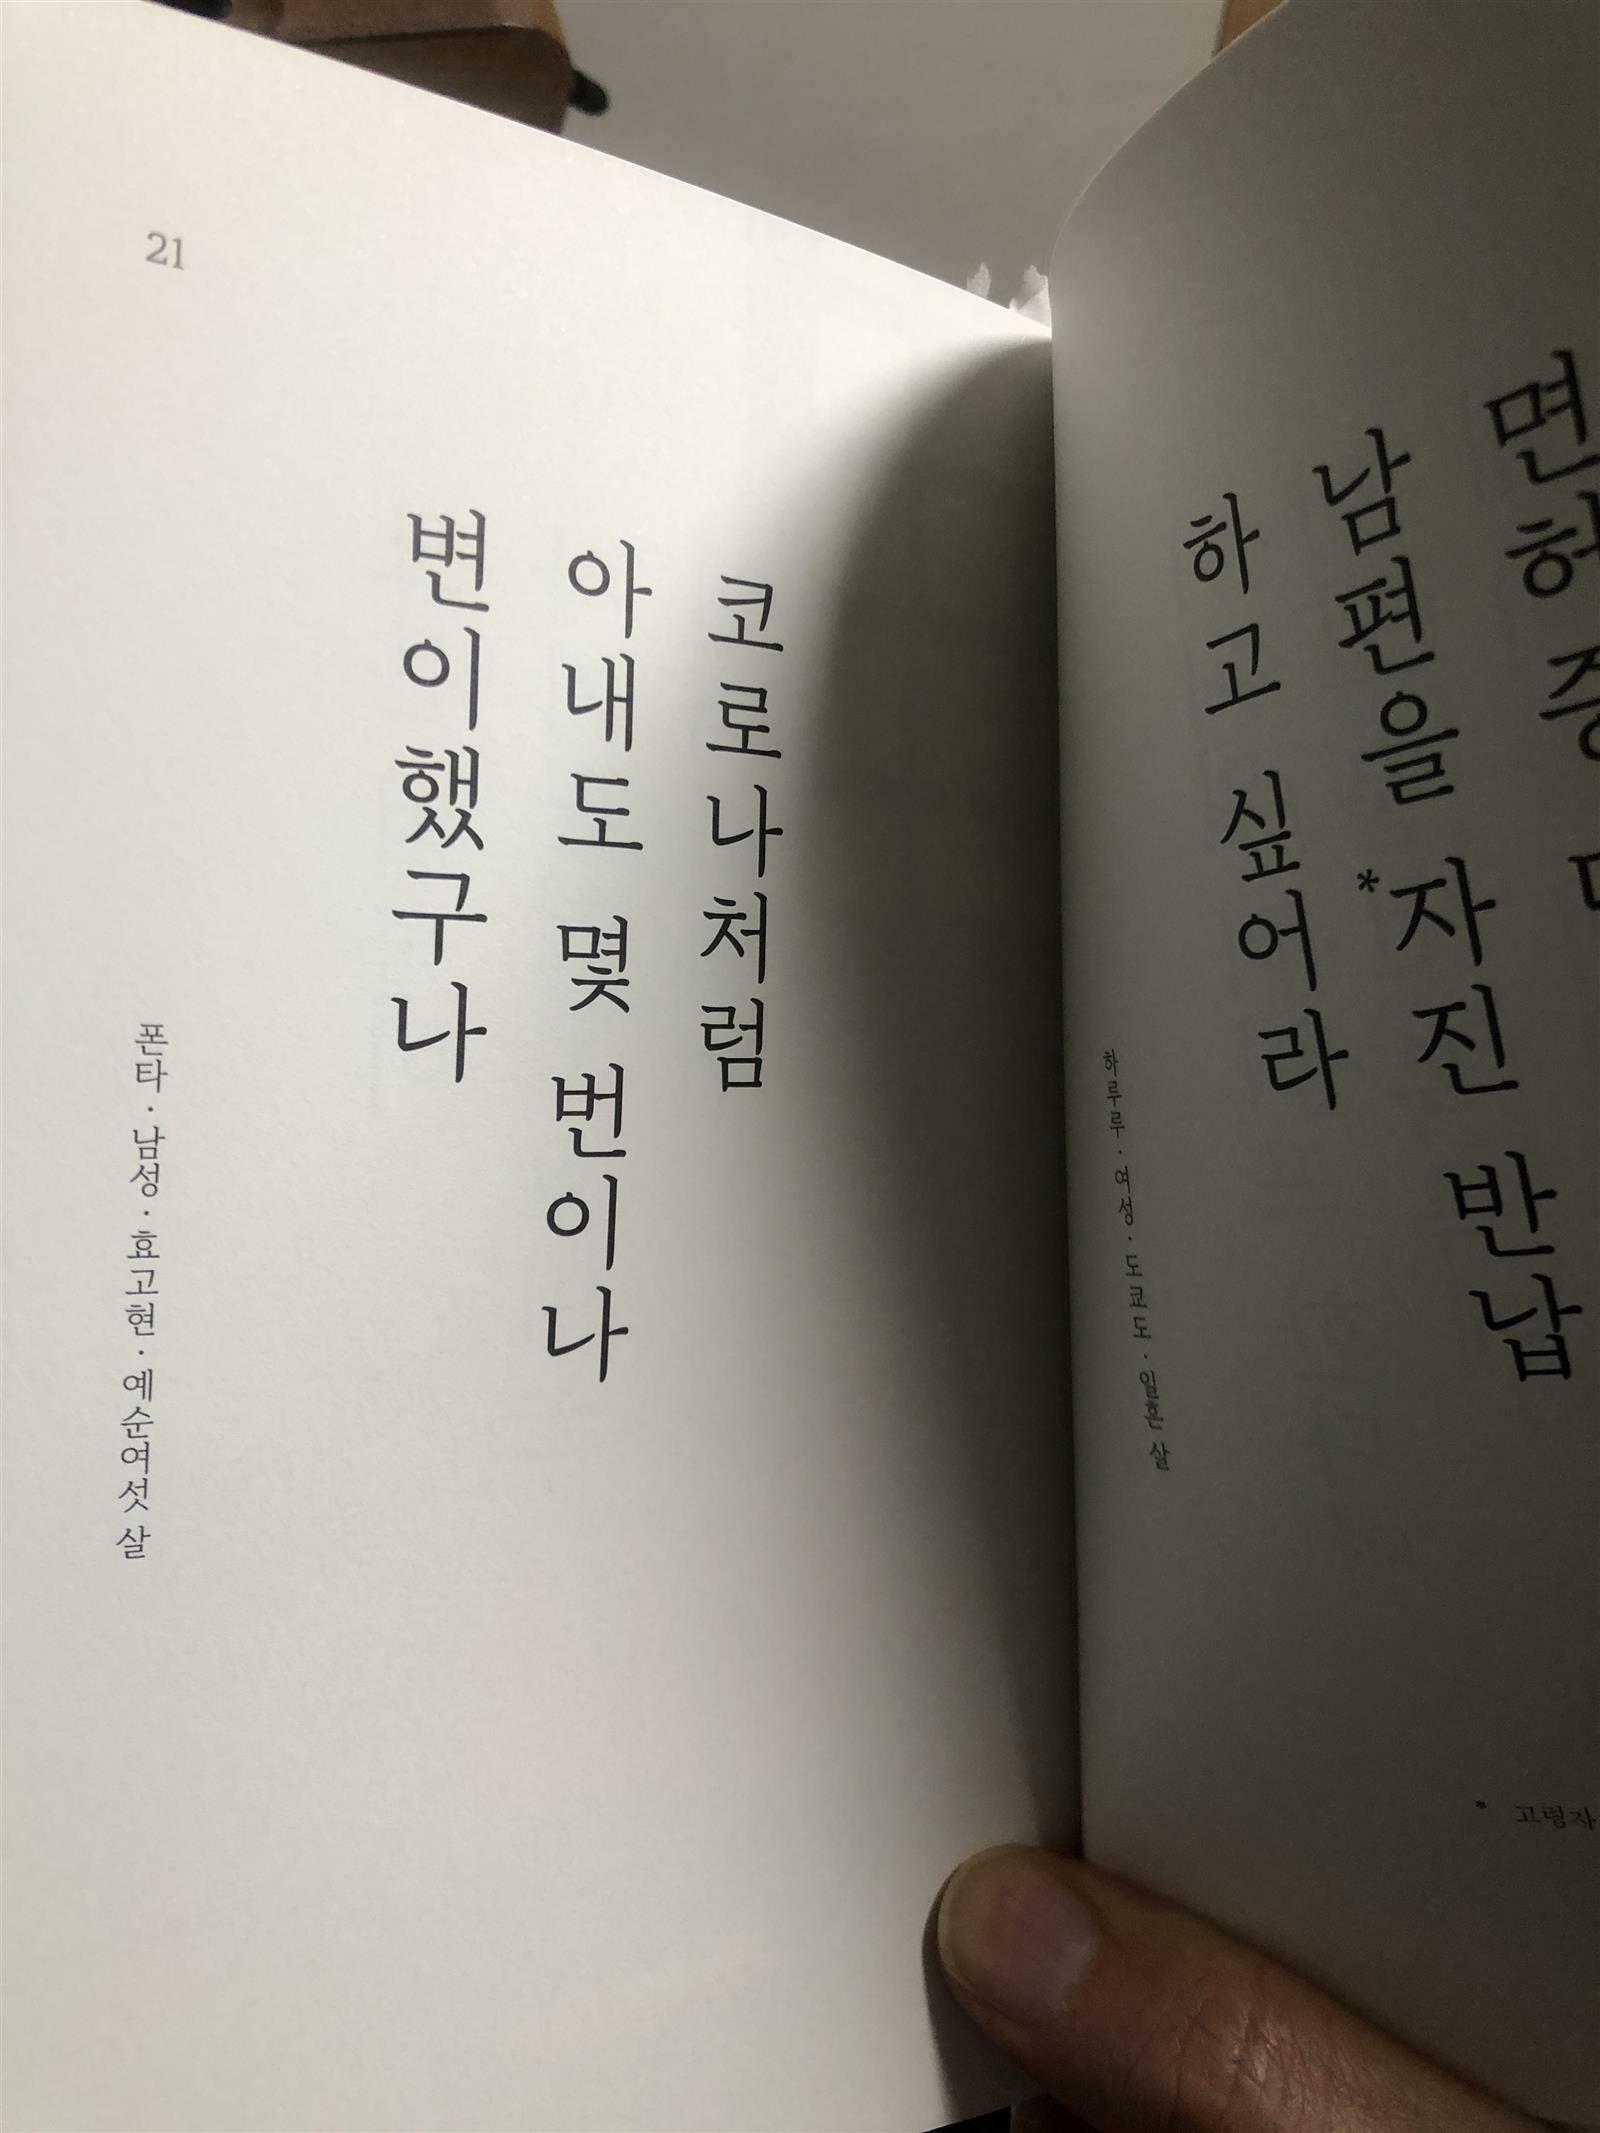 면허증
남편을 *자진 반납
하고 싶어라
하루루·여성·도쿄도·일흔 살
* 고령자
코로나처럼
아내도 몇 번이나
변이했구나
폰타·남성·효고현·예순여섯 살
21